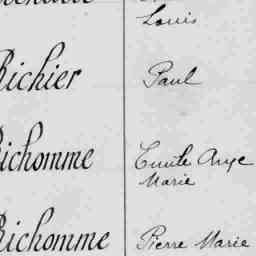 Louis
Richier Paul
Richomme Emile Ange
Marie
Richomme Pierre Marie